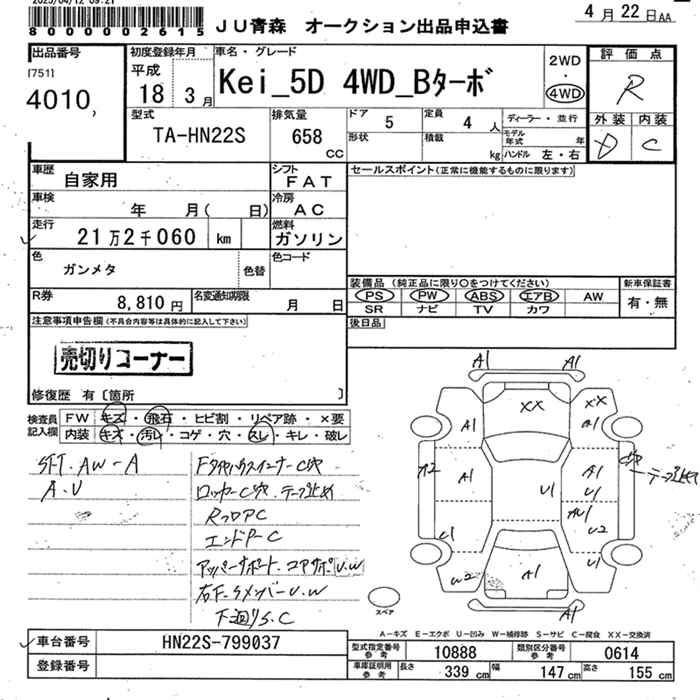 2025/04/12 09:21
8 0 0 0 0 0 2 6 1 5
JU青森 オークション出品申込書
4月22日AA
出品番号
[751]
4010
初度登録年月
平成
18 3月
車名・グレード
Kei_5D 4WD_Bターボ
2WD
・
4WD
評価点
R
外装 内装
D C
型式
TA-HN22S
排気量
658
cc
ドア 5
定員 4 人
形状
積載 kg
ディーラー・並行
モデル年式 年
ハンドル 左・右
車歴
自家用
シフト
FAT
セールスポイント(正常に機能するものに限ります)
車検
年 月( 日)
冷房
AC
走行
21万2千060 km
燃料
ガソリン
色
ガンメタ
色替
色コード
装備品 (純正品に限り○をつけてください)
新車保証書
PS PW ABS エアB AW
有・無
SR ナビ TV カワ
R券
8,810円
名変通知期限
月 日
後日品
注意事項申告欄(不具合内容等は具体的に記入して下さい)
売切りコーナー
修復歴 有〔箇所 〕
検査員記入欄
FW キズ・飛石・ヒビ割・リペア跡・×要
内装 キズ・汚レ・コゲ・穴・スレ・キレ・破レ
SFT.AW-A
A.U
ロッカーC穴.テープ止め
RフロアC
エンドP-C
アッパーサポート.コアサポU.W
右F.サメンバーU.W
下廻りS.C
A1 A1
XX XX
A1 A1
A2 A1 A1
U1 U1
U1 U2
W2 A1 U1
A1 A1
テープ止め
スペア
A-キズ E-エクボ U-凹み W-補修跡 S-サビ C-腐食 XX-交換済
車台番号
HN22S-799037
登録番号
型式指定番号参考
10888
類別区分番号参考
0614
車庫証明用参考
長さ 339 cm
幅 147 cm
高さ 155 cm